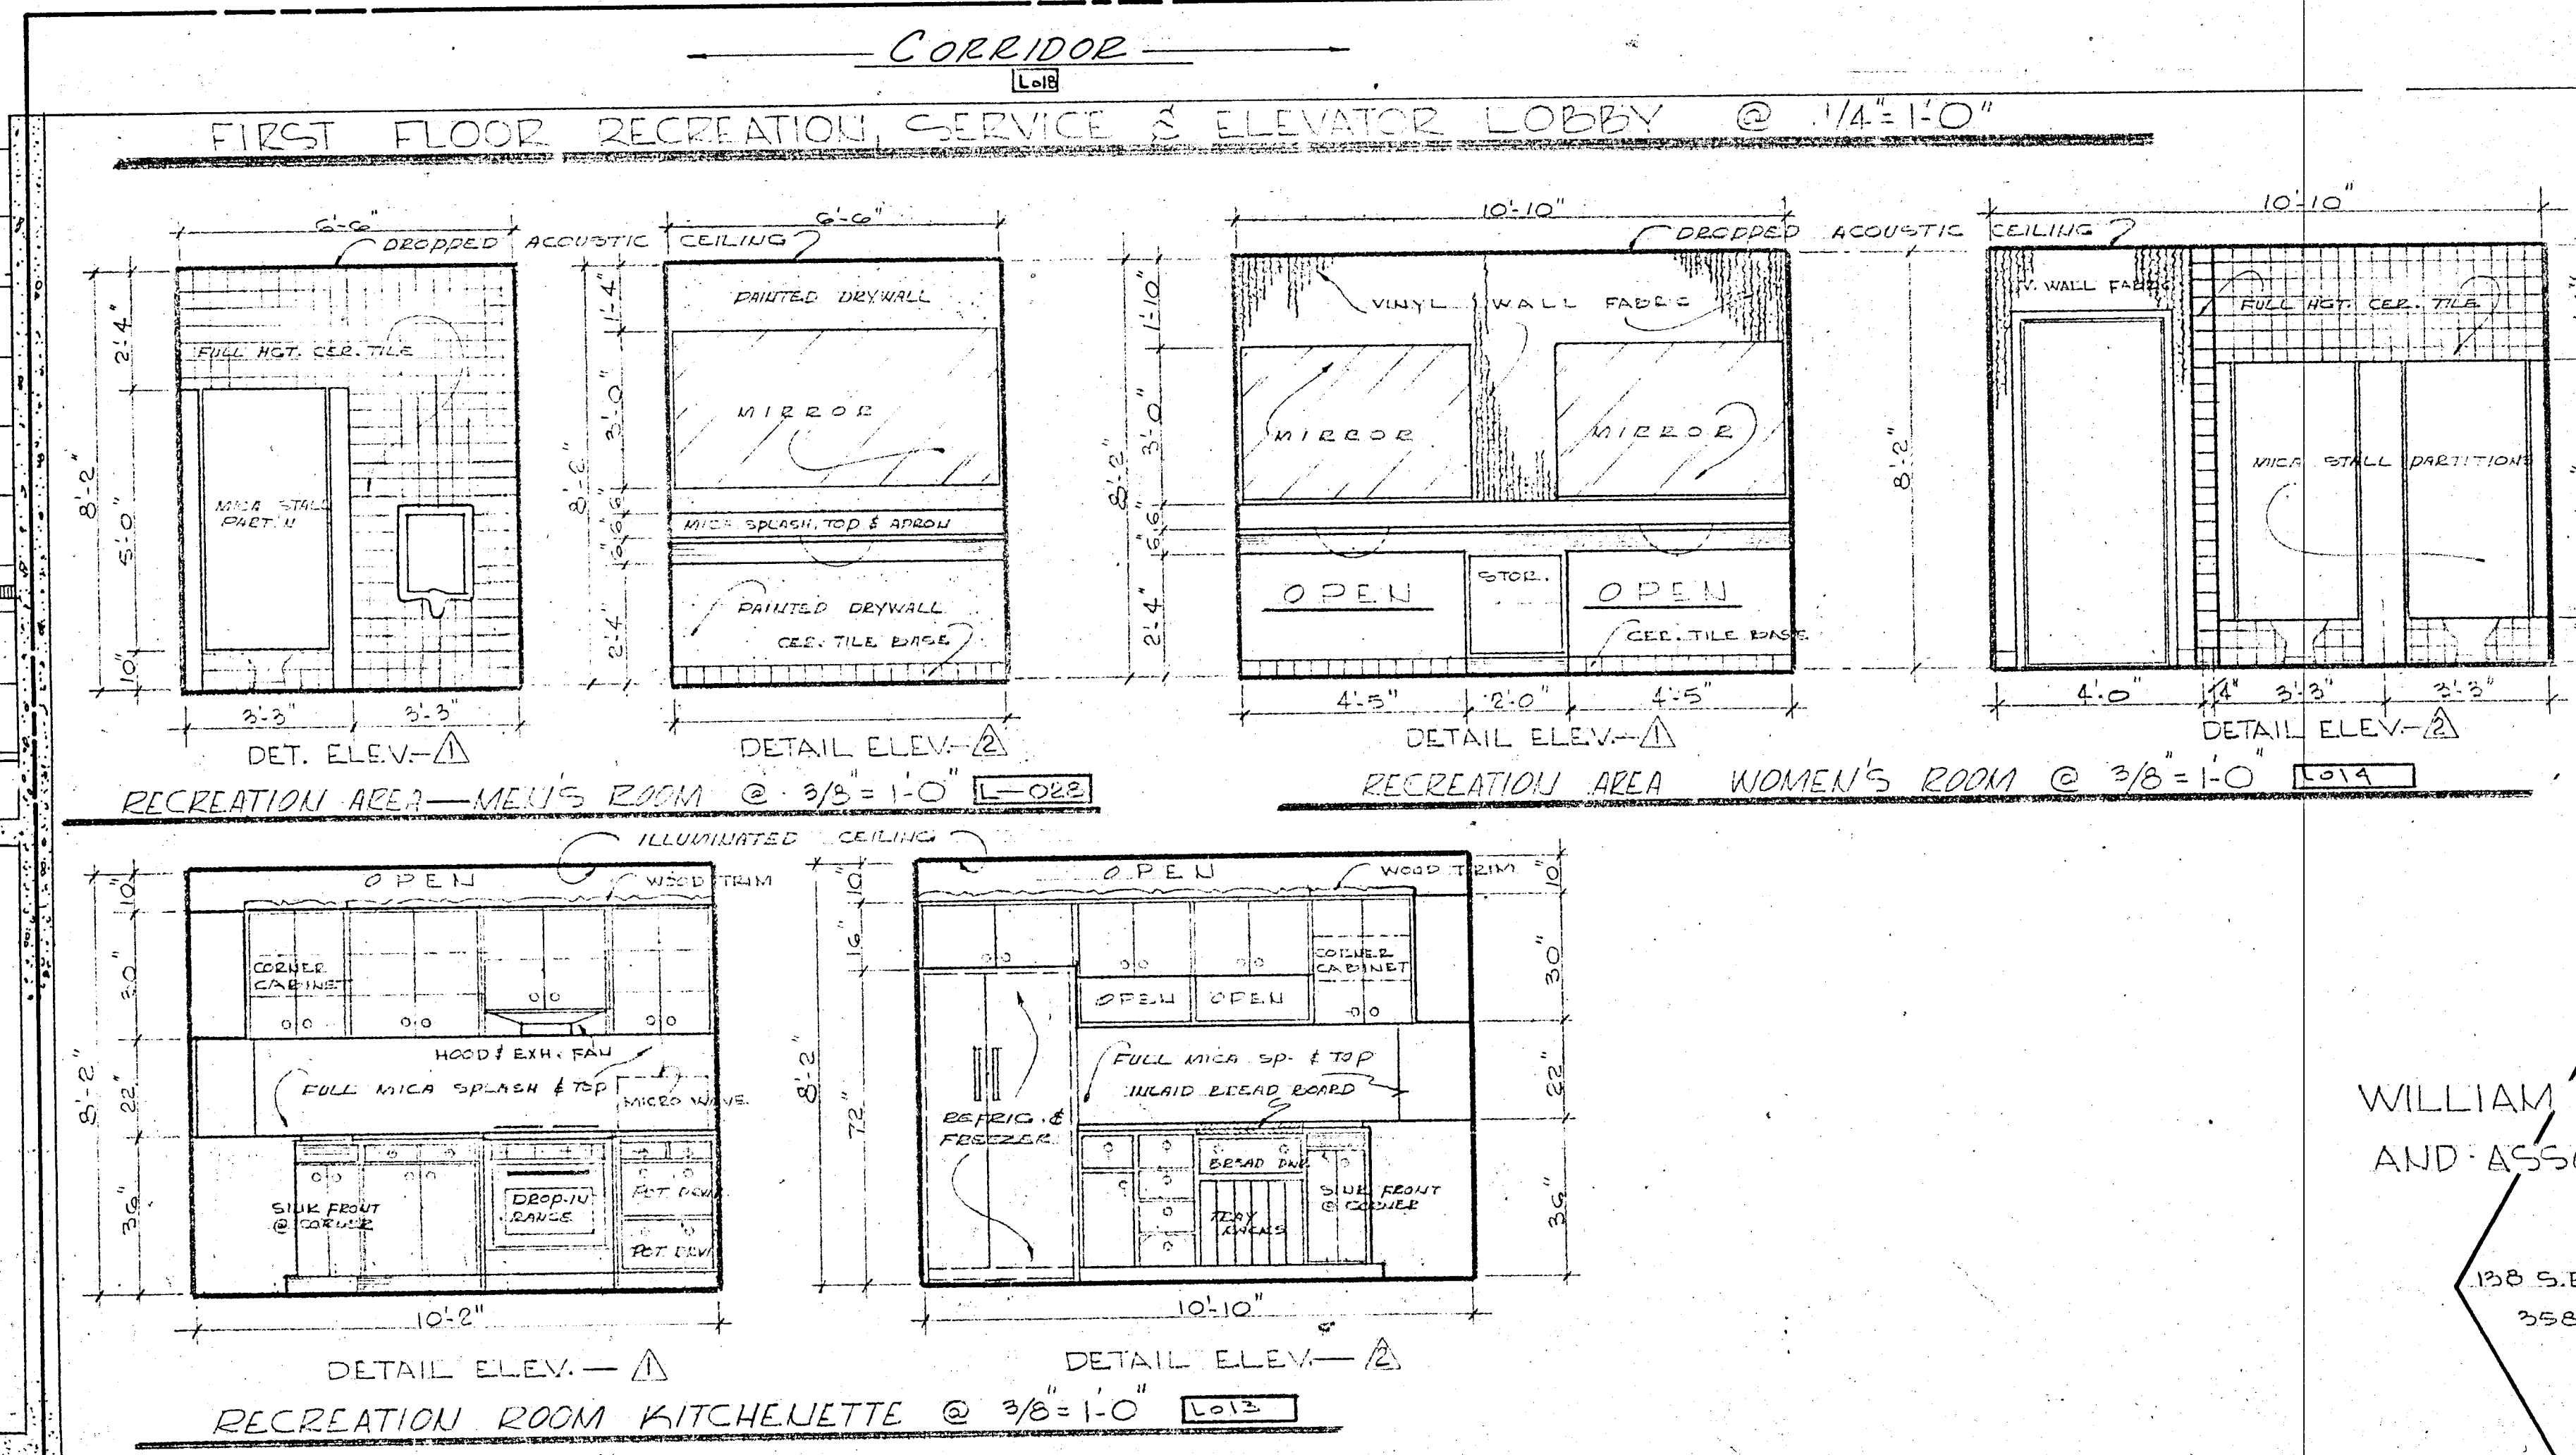 CORRIDOR
L018
FIRST FLOOR RECREATION, SERVICE & ELEVATOR LOBBY @ 1/4"=1'-0"
6'-6"
6'-6"
10'-10"
10'-10"
DROPPED ACOUSTIC CEILING
DROPPED ACOUSTIC CEILING
8'-2"
2'-4"
5'-0"
10"
FULL HGT. CER. TILE
MICA STALL
PART'N
3'-3"
3'-3"
DET. ELEV.-1
8'-2"
1'-4"
3'-0"
6"
6"
6"
2'-4"
PAINTED DRYWALL
MIRROR
MICA SPLASH, TOP & APRON
PAINTED DRYWALL
CER. TILE BASE
DETAIL ELEV.-2
RECREATION AREA—MEN'S ROOM @ 3/8"=1'-0" L-028
8'-2"
1'-10"
3'-0"
6"
6"
2'-4"
VINYL WALL FABRIC
MIRROR
MIRROR
OPEN
STOR.
OPEN
CER. TILE BASE
4'-5"
2'-0"
4'-5"
DETAIL ELEV.-1
8'-2"
V. WALL FABRIC
FULL HGT. CER. TILE
MICA STALL PARTITIONS
4'-0"
4"
3'-3"
3'-3"
DETAIL ELEV.-2
RECREATION AREA WOMEN'S ROOM @ 3/8"=1'-0" L014
ILLUMINATED CEILING
OPEN
WOOD TRIM
8'-2"
10"
30"
22"
36"
CORNER
CABINET
HOOD & EXH. FAN
FULL MICA SPLASH & TOP
MICRO WAVE.
SINK FRONT
@ CORNER
DROP-IN
RANGE
POT DRWR
POT DRWR
10'-2"
DETAIL ELEV.—1
OPEN
WOOD TRIM
8'-2"
10"
16"
72"
CORNER
CABINET
OPEN
OPEN
FULL MICA SP. & TOP
INLAID BREAD BOARD
REFRIG. &
FREEZER
BREAD DWR
TRAY
RACKS
SINK FRONT
@ CORNER
10"
30"
22"
36"
10'-10"
DETAIL ELEV.—2
RECREATION ROOM KITCHENETTE @ 3/8"=1'-0" L013
WILLIAM
AND ASSO
138 S.E
358